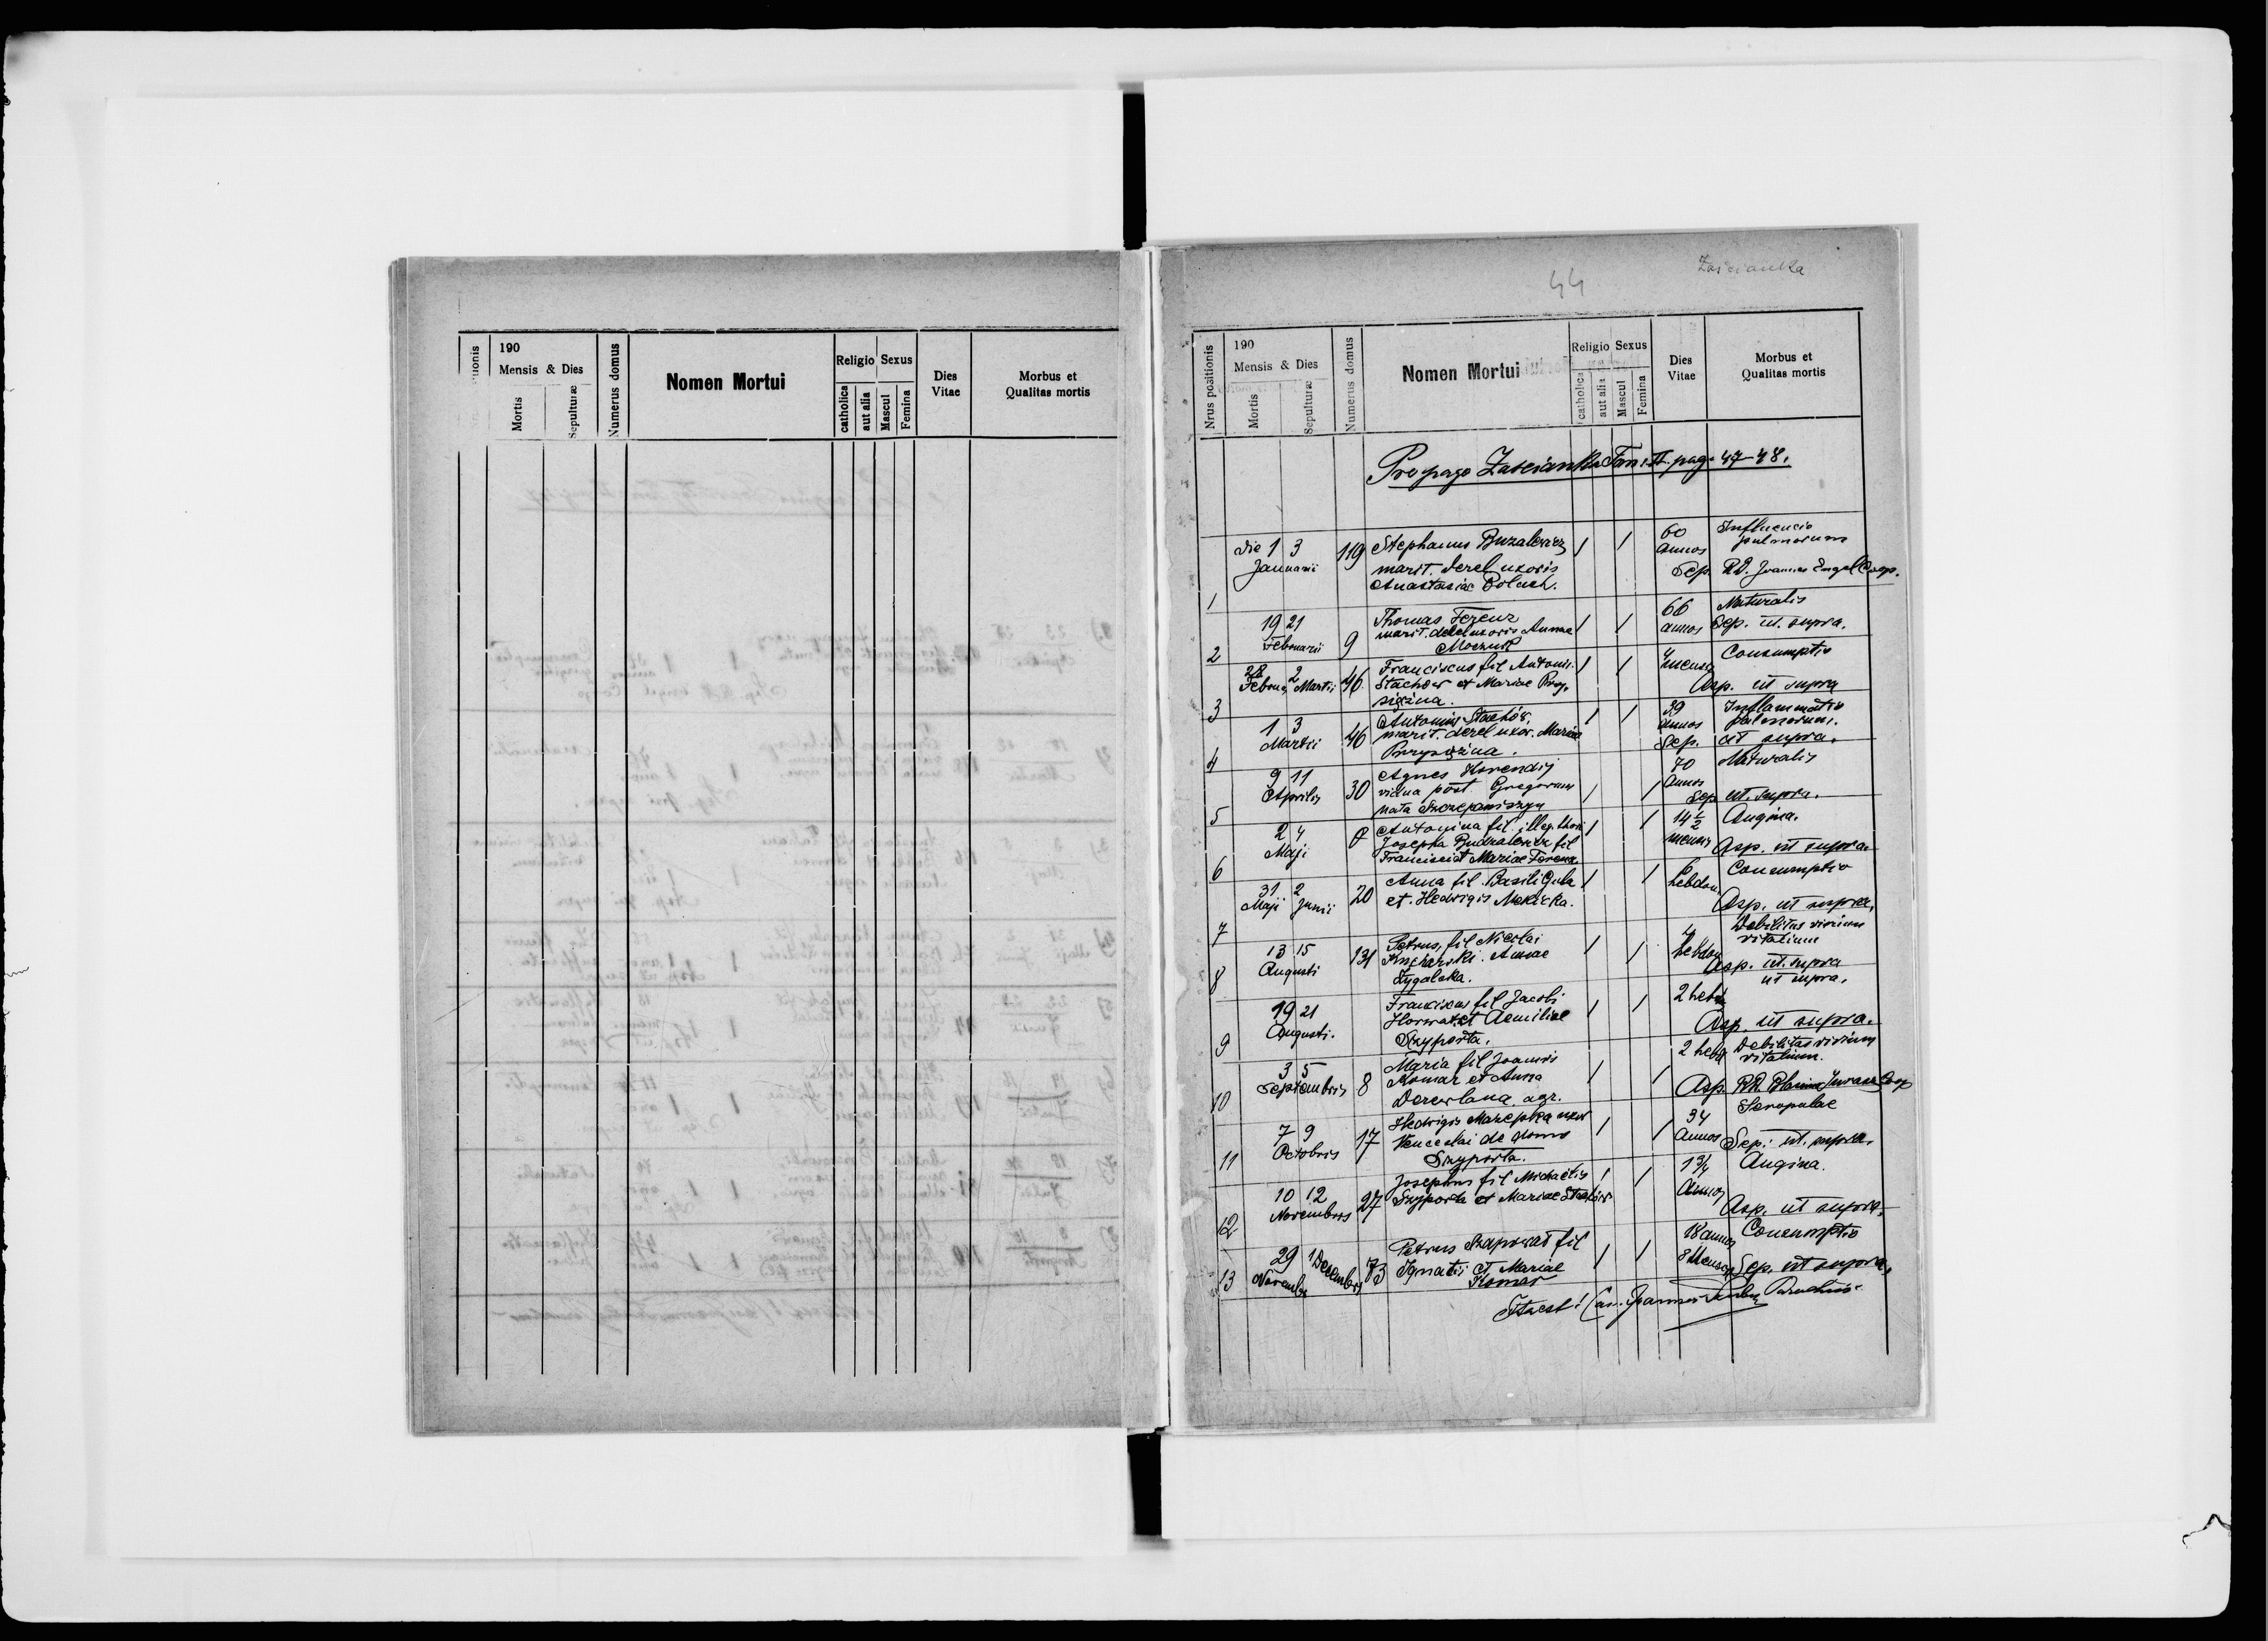 190
Mensis & Dies
Mortis
Sepulturæ
Numerus domus
Nomen Mortui
Religio
Sexus
catholica
aut alia
Mascul
Femina
Dies
Vitae
Morbus et
Qualitas mortis
44
Zaścianka
Nrus positionis
190
Mensis & Dies
Mortis
Sepulturæ
Numerus domus
Nomen Mortui
Religio
Sexus
catholica
aut alia
Mascul
Femina
Dies
Vitae
Morbus et
Qualitas mortis
Propago Zaścianka Tom. II. pag. 47-48.
1
die 1 3
Januarii
119
Stephanus Buzalewicz
marit. derel uxoris
Anastasiae Polach.
1 1
60
annos
Influencio
pulmorum
Sep. RD. Joannes Engel Coop.
2
19 21
Februarii
9
Thomas Ferenz
marit. derel uxoris Annae
1 1
66
annos
Naturalis
Sep. ut. supra.
3
28 2
Februa Martii
46
Franciscus fil Antonii
Stachów et Mariae Przy-
1 1
4
mensa
Consumptio
Asp. ut supra
4
1 3
Martii
46
Antonius Stachów,
marit. derel uxor. Mariae
1 1
39
annos
Inflammatio
pulmorum.
Sep. ut supra.
5
9 11
Aprilis
30
Agnes Horendij
vidua post Gregorium
nata Szczepaniszyn
1 1
70
annos
Naturalis
Sep ut. supra.
6
2 4
Maji
Antonina fil illeg. thori
Josepha Budzalewicz fil
Francisci et Mariae Ferenz
1 1
14 1/2
mensis
Angina.
Asp. ut supra.
7
31 2
Maji Junii
20
Anna fil. Basili Gula
et. Hedwigis
1 1
6
hebdom.
Consumptio
Asp. ut supra.
8
13 15
Augusti
131
Petrus, fil Nicolai
Annae
Zygalska.
1 1
4
hebdom
Debilitas virium
vitalium
Asp. ut. supra
9
19 21
Augusti.
Franciscus fil Jacobi
Horwat et Aemiliae
Szyporta.
1 1
2 hebd
ut supra.
Asp. ut supra.
10
3 5
Septembris
8
Maria fil Joannis
Komar et Anna
Derewlana agr.
1 1
2 hebd
Debilitas virium
vitalium.
11
7 9
Octobris
17
Hedwigis Mazepka uxor
Venceslai de domo
Szyporta.
1 1
34
Annos
Scropulae
Sep. ut. supra.
12
10 12
Novembris
27
Josephus fil Michaelis
Szyporta et Mariae Stachów
1 1
1 3/4
Annos
Angina.
Asp. ut supra.
13
29 1
Novembr Decembris
73
Petrus Szaporat fil
Ignatii et Mariae
Komar
1 1
18 annos
8 Mensa
Consumptio
Sep. ut supra.
Ita est!